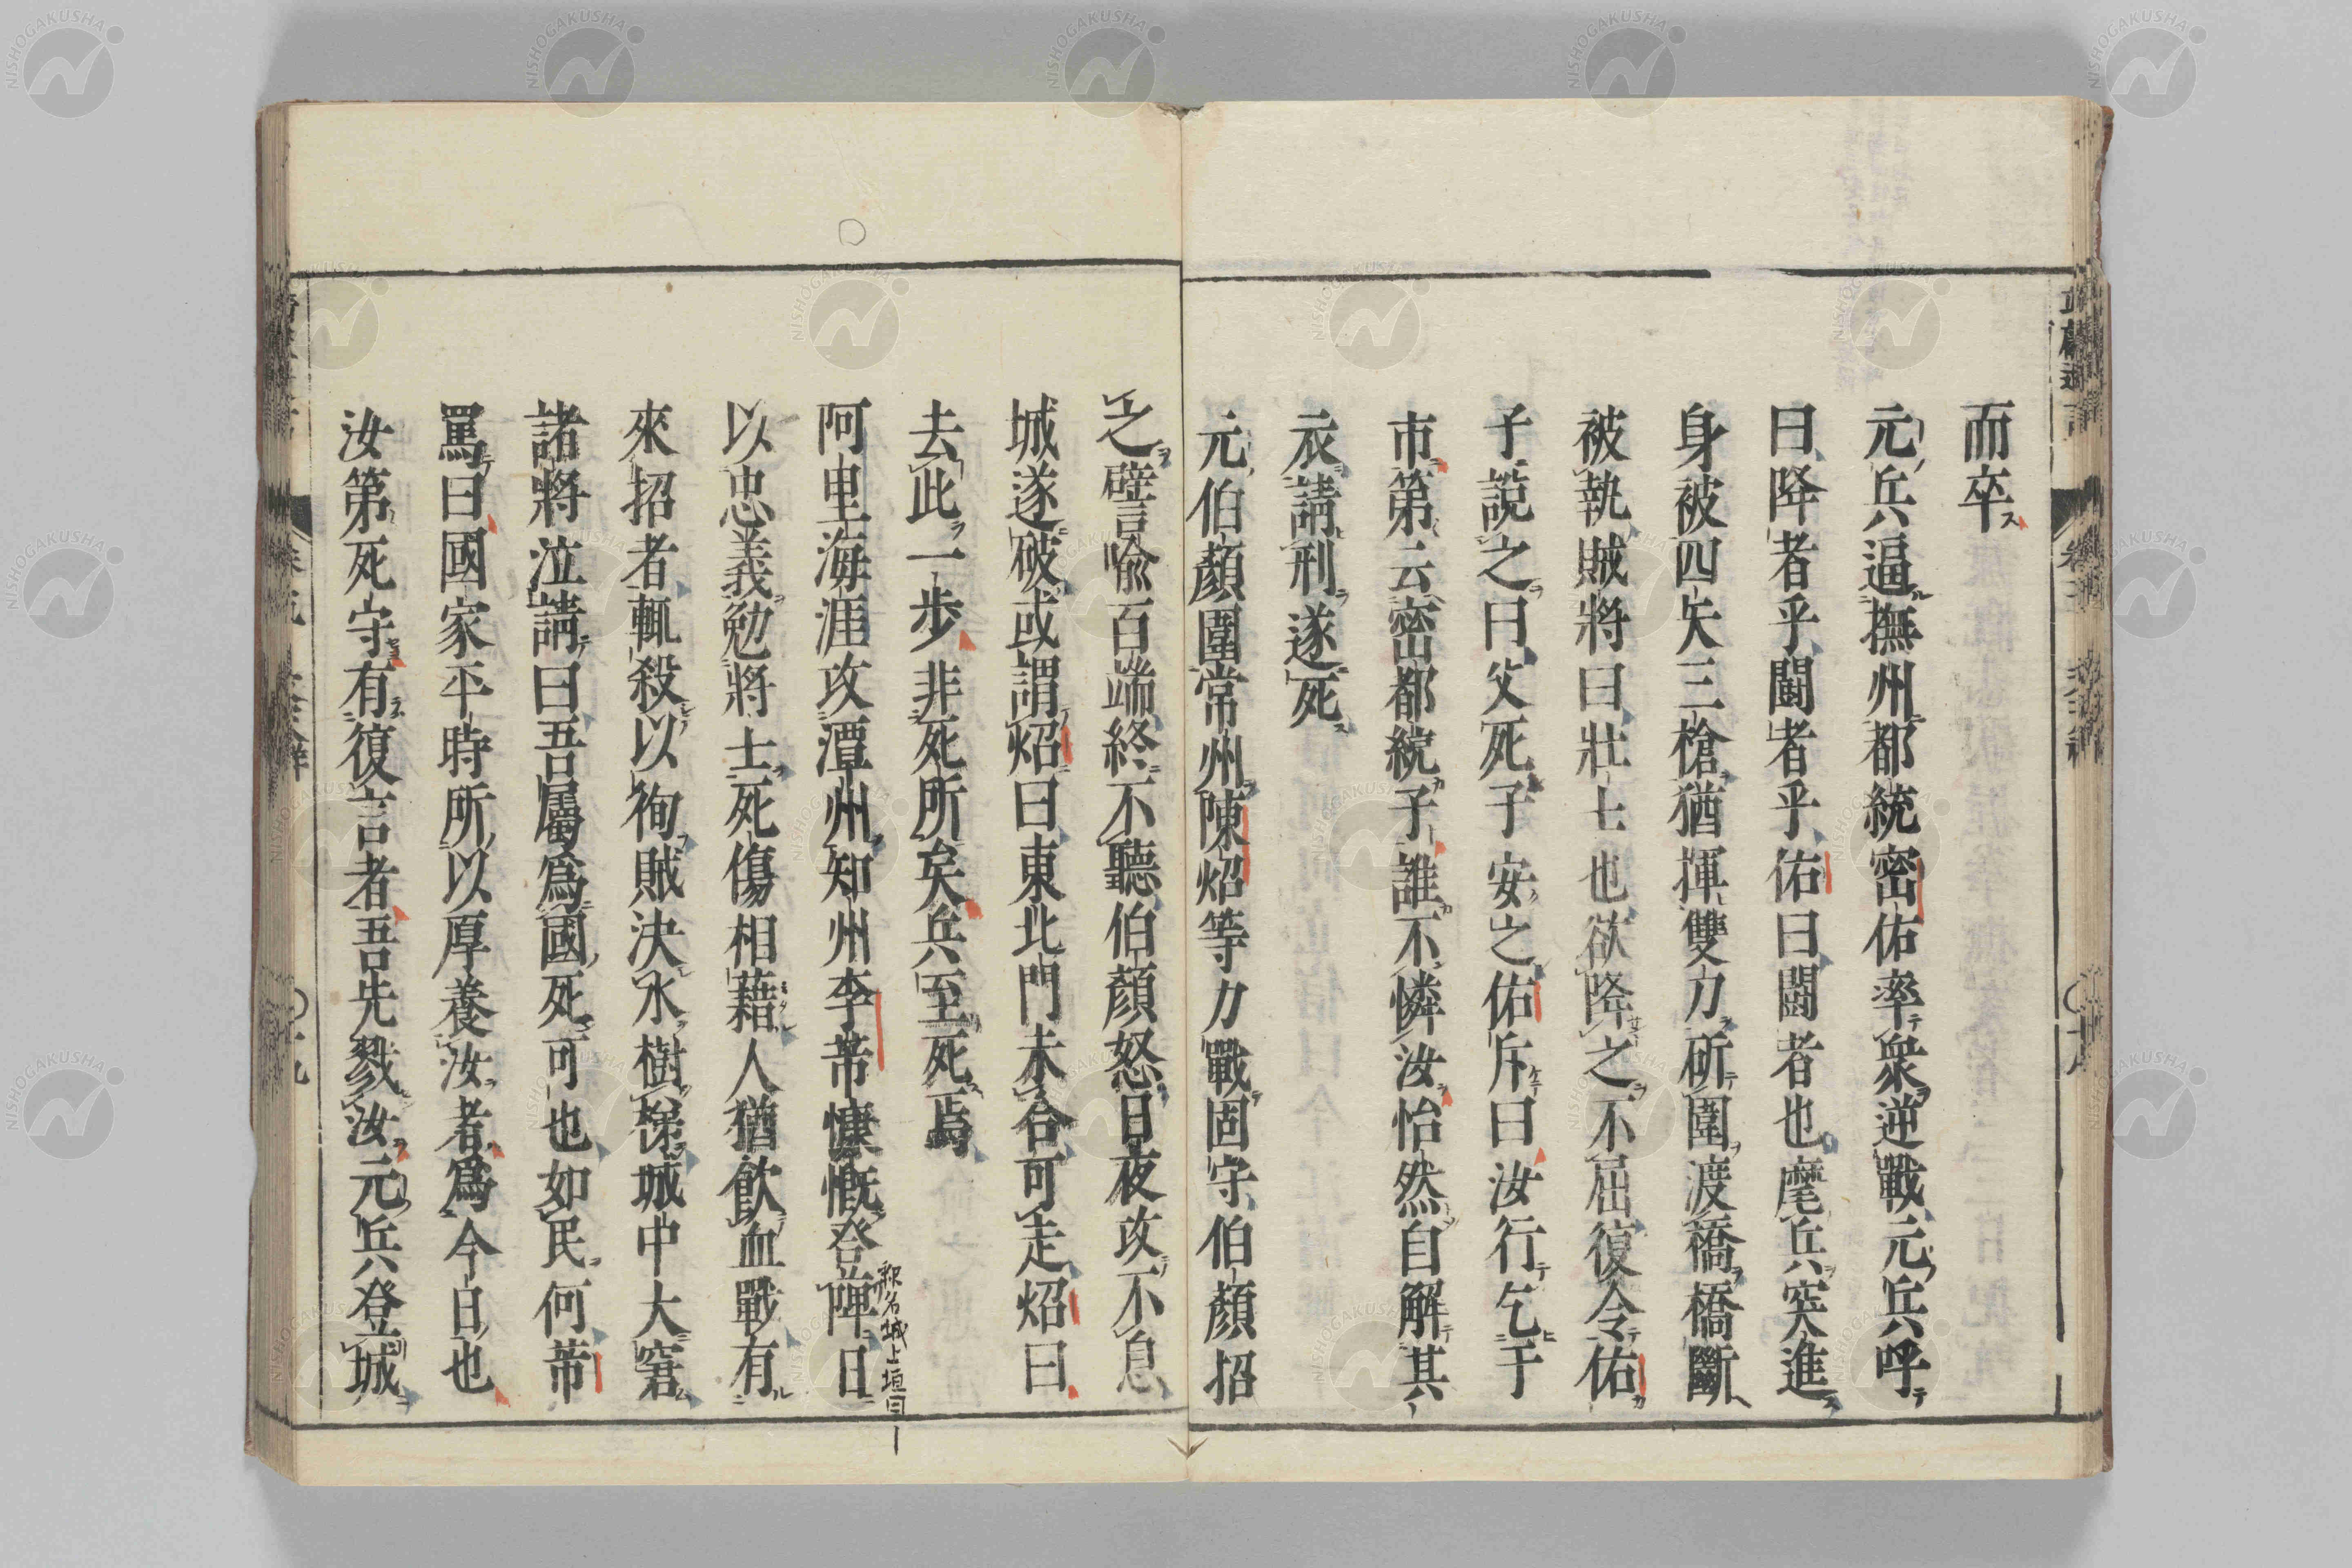 而卒ス
元兵逼撫州都統密佑率衆逆戰元兵呼
曰降者乎鬪者乎佑曰鬪者也麾兵突進
身被四矢三槍猶揮雙刀斫圍渡橋橋斷
被執賊將曰壯士也欲降之不屈復令佑
子說之曰父死子安之佑斥曰汝行乞于
市第云密都統子誰不憐汝怡然自解其
衣請刑遂死
元伯顏圍常州陳炤等力戰固守伯顏招
之譬喩百端終不聽伯顏怒日夜攻不息
城遂破或謂炤曰東北門未合可走炤曰
去此一步非死所矣兵至死焉
阿里海涯攻潭州知州李芾慷慨登陴日
釈名城上垣曰
以忠義勉將士死傷相藉人猶飮血戰有
來招者輒殺以徇賊決水樹梯城中大窘
諸將泣請曰吾屬爲國死可也如民何芾
罵曰國家平時所以厚養汝者爲今日也
汝第死守有復言者吾先戮汝元兵登城
NISHOGAKUSHA